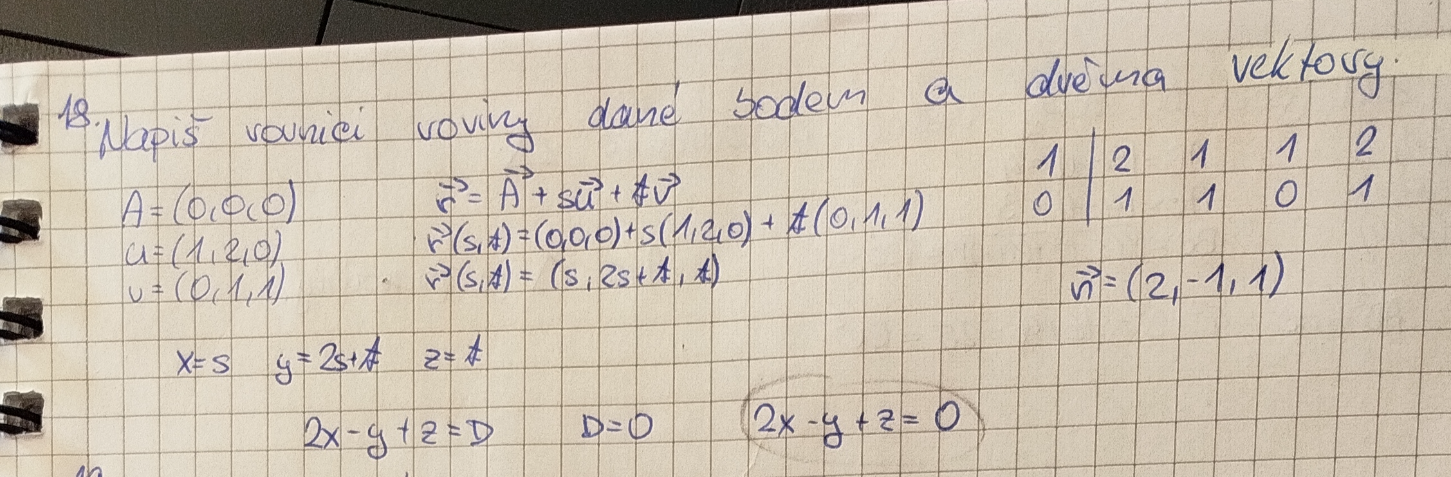 18. Napiš rovnici roviny dané bodem a dvěma vektory.
A=(0,0,0)
u=(1,2,0)
v=(0,1,1)
r⃗ = A⃗ + su⃗ + tv⃗
r⃗(s,t)=(0,0,0)+s(1,2,0)+t(0,1,1)
r⃗(s,t)= (s, 2s+t, t)
1 | 2 1 1 2
0 | 1 1 0 1
n⃗=(2,-1,1)
x=s y=2s+t z=t
2x-y+z=D D=0 2x-y+z=0